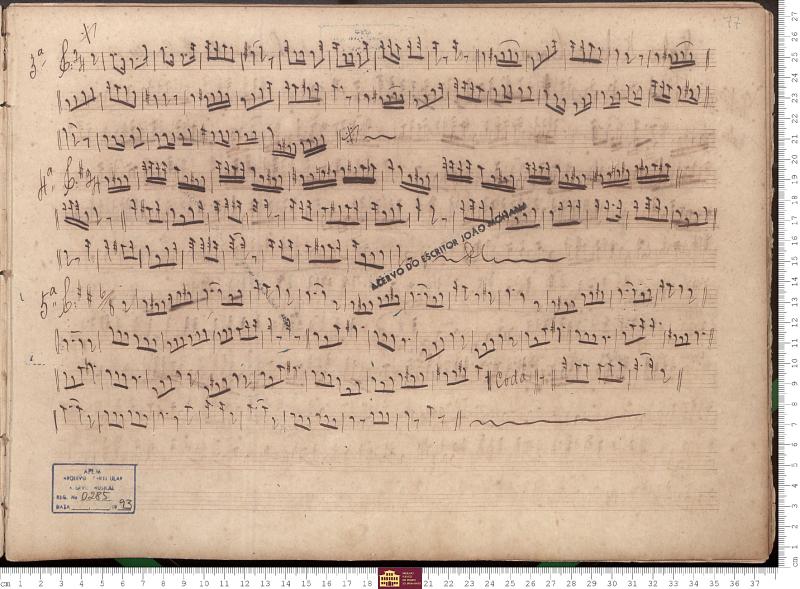 77
3ª
4ª
ACERVO DO ESCRITOR JOÃO MOHANA
5ª
Coda
APEM
REG. No 0285
DATA 19 93